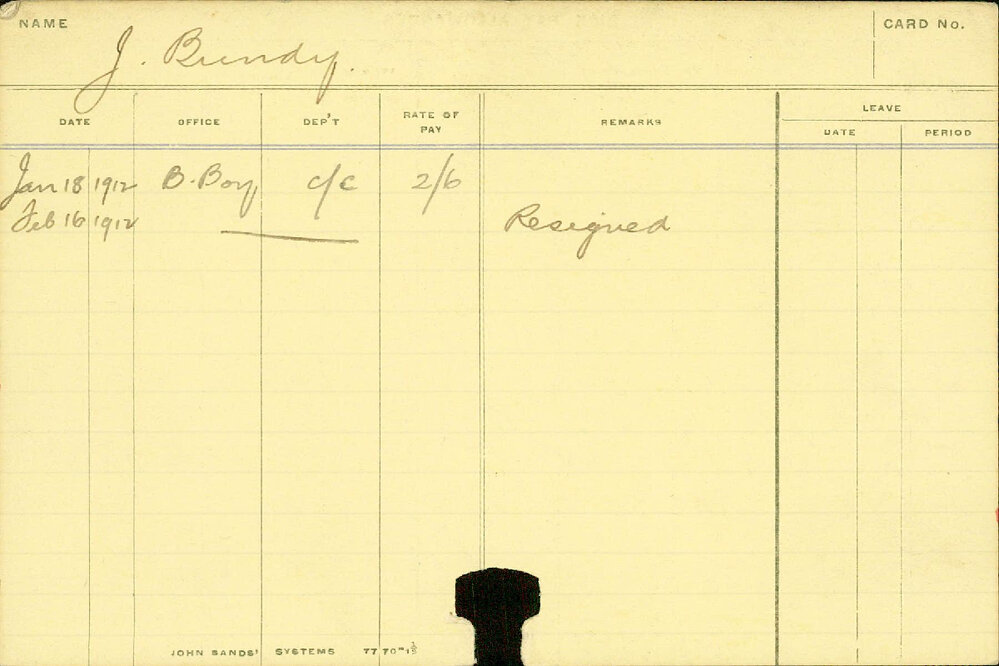 NAME
CARD No.
J. Bundy.
LEAVE
DATE OFFICE DEP'T RATE OF PAY REMARKS DATE PERIOD
Jan 18 1912 B. Boy c/c 2/6
Feb 16 1912 Resigned
JOHN SANDS' SYSTEMS